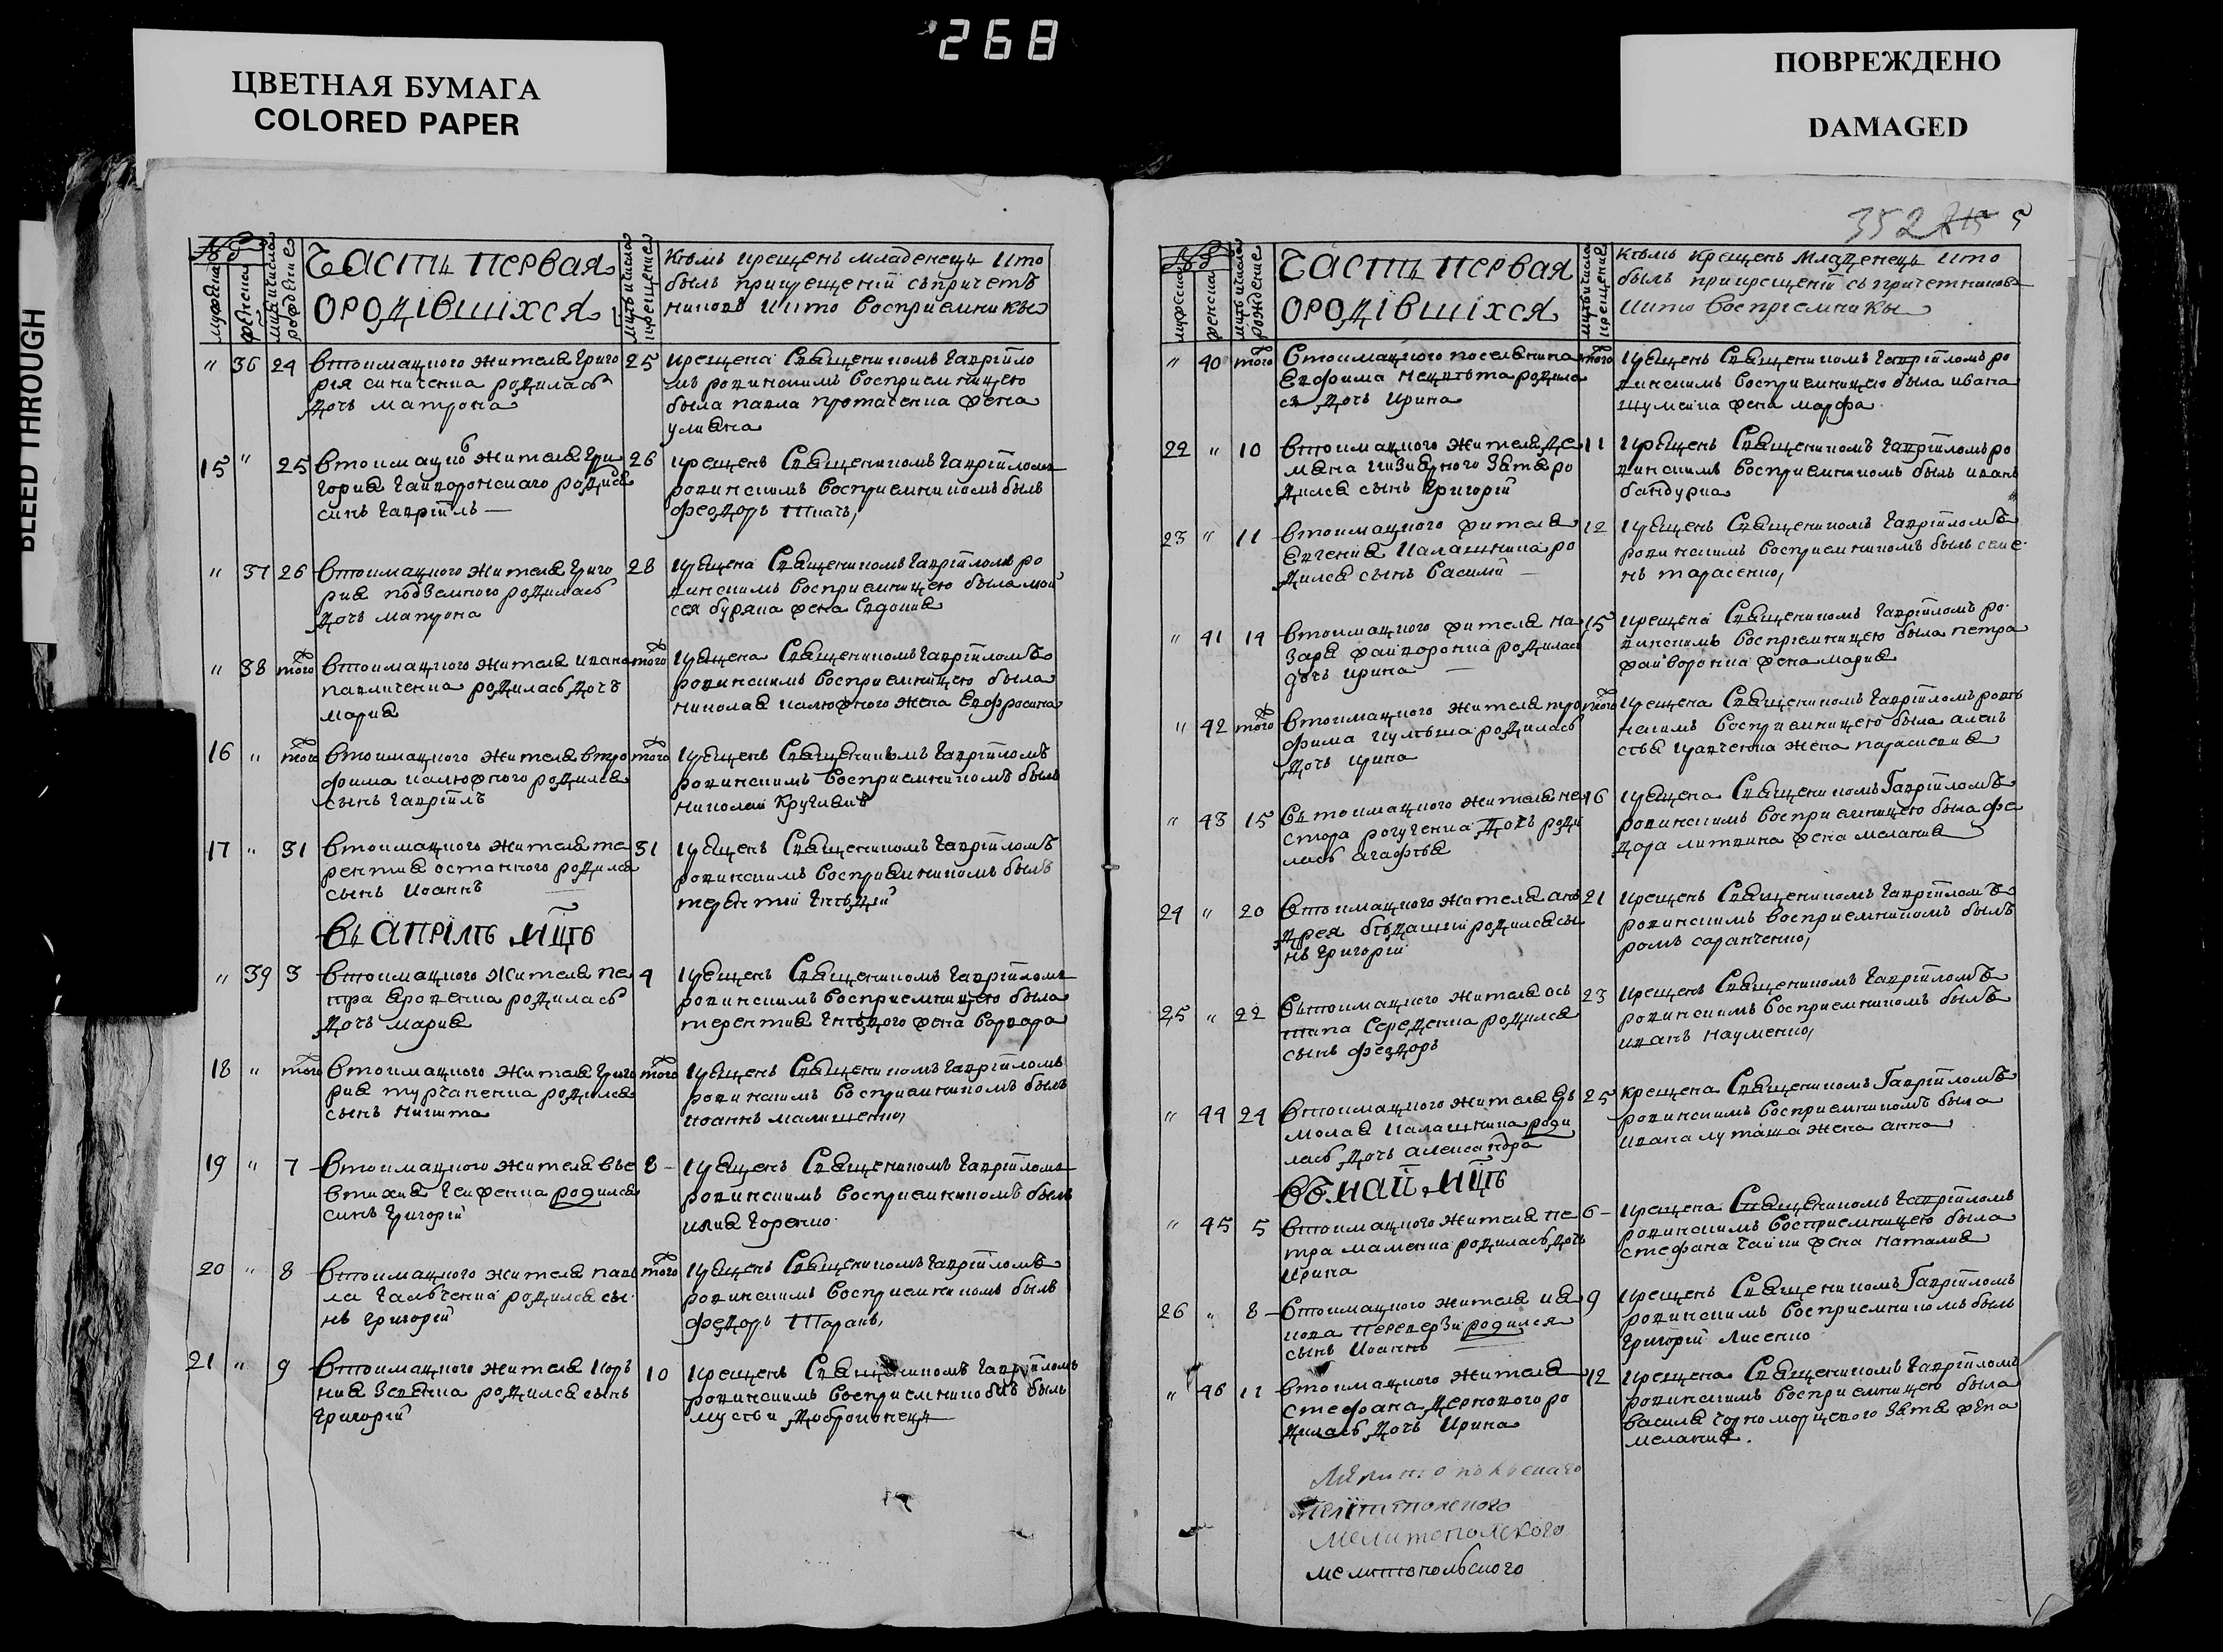 268
ЦВЕТНАЯ БУМАГА
COLORED PAPER
ПОВРЕЖДЕНО
DAMAGED
BLEED THROUGH
352 5
Часть первая
ородівшіхся
Кѣмъ крещенъ младенецъ кто
былъ прикрещеній съпричетъ
никовъ икто восприемникы
" 36 24
втокмацкого жителя григо
рия синиченка родилась
дочь матрона
25
крещена Священикомъ гавріило
мъ ровинскимъ восприемницею
была павла протаченка жена
улияна
15 " 25
втокмацко жителя гри
гория гайворонскаго родися
синъ гавріилъ —
26
крещенъ Священикомъ гавріиломъ
ровинскимъ восприемникомъ былъ
феодоръ ткачъ,
" 37 26
втокмацкого жителя григо
рия подземного родилась
дочь матрона
28
крещена Священикомъ гавріиломъ ро
винскимъ восприемницею была мои
сея буряка жена Евдокия
" 38 того
втокмацкого жителя ивана
павличенка родилась дочъ
мария
того
крещена Священикомъ гавріиломъ
ровинскимъ восприемницею была
николая калюжного жена Ефросина
16 " того
втокмацкого жителя втро
фима калюжного родился
сынъ гавріилъ
того
крещенъ Священикомъ гавріиломъ
ровинскимъ восприемникомъ былъ
николай Кругляк
17 " 31
втокмацкого жителя те
рентия остапного родился
сынъ Иоаннъ
31
крещенъ Священикомъ гавріиломъ
ровинскимъ восприемникомъ былъ
терентий гнѣдий
въ апрілѣ мцѣ
" 39 3
втокмацкого жителя пе
тра яровенка родилась
дочъ мария
4
крещенъ Священикомъ гавріиломъ
ровинскимъ восприемницею была
терентия гнѣдого жена варвара
18 " того
втокмацкого жителя григо
рия турчаненка родился
сынъ никита
того
крещенъ Священикомъ гавріиломъ
ровинскимъ восприемникомъ былъ
иоаннъ малишенко,
19 " 7
втокмацкого жителя вѣе
втихия родился
синъ григорій
8 -
крещенъ Священикомъ гавріиломъ
ровинскимъ восприемникомъ былъ
илия горенко
20 " 8
втокмацкого жителя пав
ла галченка родился сы
нъ григорій
того
крещенъ Священикомъ гавріиломъ
ровинскимъ восприемникомъ былъ
федоръ Таранъ,
21 " 9
втокмацкого жителя кор
ния зевенка родился сынъ
григорій
10
крещенъ Священикомъ гавріиломъ
ровинскимъ восприемникомъ былъ
мусѣи доброконецъ
Часть первая
ородівшіхся
Кѣмъ Крещенъ Младенецъ кто
былъ прикрещеній съпричетниковъ
икто восприемникы
" 40 того
Втокмацкого поселянина
Ефима нецвѣта родила
ся дочь ирина
того
крещенъ Священикомъ гавріиломъ ро
винскимъ восприемницею была ивана
шумейка жена марфа
22 " 10
втокмацкого жителя де
мяна зятя ро
дился сынъ григорій
11
крещенъ Священикомъ гавріиломъ ро
винскимъ восприемникомъ былъ иванъ
бандурка
23 " 11
втокмацкого жителя
Евгения Калашника ро
дился сынъ василий
12
крещенъ Священикомъ гавріиломъ
ровинскимъ восприемникомъ былъ семе
нъ тарасенко,
" 41 14
втокмацкого жителя на
зара файворонка родилась
дочь ирина
15
крещена Священикомъ гавріиломъ ро
винскимъ восприемницею была петра
файворонка жена мария
" 42 того
втокмацкого жителя тро
фима кулѣша родилась
дочъ ирина
того
крещена Священикомъ гавріиломъ ровѣ
нскимъ восприемницею была алекъ
сѣя кравченка жена параскевия
" 43 15
въ токмацкого жителя не
стора рогученка дочъ роди
лась агафѣя
16
крещена Священикомъ Гавріиломъ
ровинскимъ восприемницею была фе
дора литвина жена мелания
24 " 20
втокмацкого жителя анъ
дрея родился сы
нъ григорій
21
крещенъ Священикомъ гавріиломъ
ровинскимъ восприемникомъ былъ
романъ саранченко,
25 " 22
вътокмацкого жителя ос
тапа Середенка родился
сынъ феодоръ
23
крещенъ Священикомъ гавріиломъ
ровинскимъ восприемникомъ былъ
иванъ науменко,
" 44 24
втокмацкого жителя
Калашника роди
лась дочь александра
25
Крещена Священикомъ Гавріиломъ
ровинскимъ восприемникомъ была
ивана луташа жена анна
въ маіѣ мцѣ
" 45 5
втокмацкого жителя пе
тра маменка родилась дочъ
ирина
6 -
крещена Священикомъ гавріиломъ
ровинскимъ восприемницею была
стефана гайки жена наталия
26 " 8
втокмацкого жителя ия
кова перевѣрзи родился
сынъ Иоаннъ
9
крещенъ Священикомъ Гавріиломъ
ровинскимъ восприемникомъ былъ
григорій лисенко
" 46 11
втокмацкого жителя
стефана дернового ро
дилась дочъ Ирина
12
крещена Священикомъ гавріиломъ
ровинскимъ восприемницею была
василя чорноморского зятя жена
мелания.
мелитопольского
мелитопольского